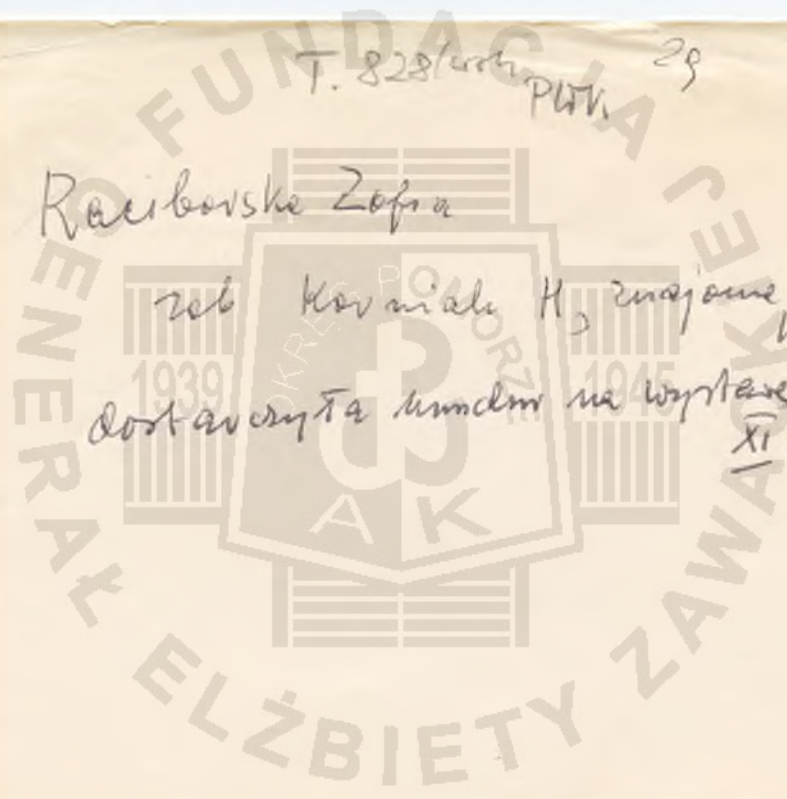 T. 828/wsk. 29
Plut.
Raciborska Zofia
zob Korniak H, znajoma,
dostarczyła na wystawę
XI
FUNDACJA
GENERAŁ ELŻBIETY ZAWACKIEJ
OKRĘG POMORZE
1939 1945
A K